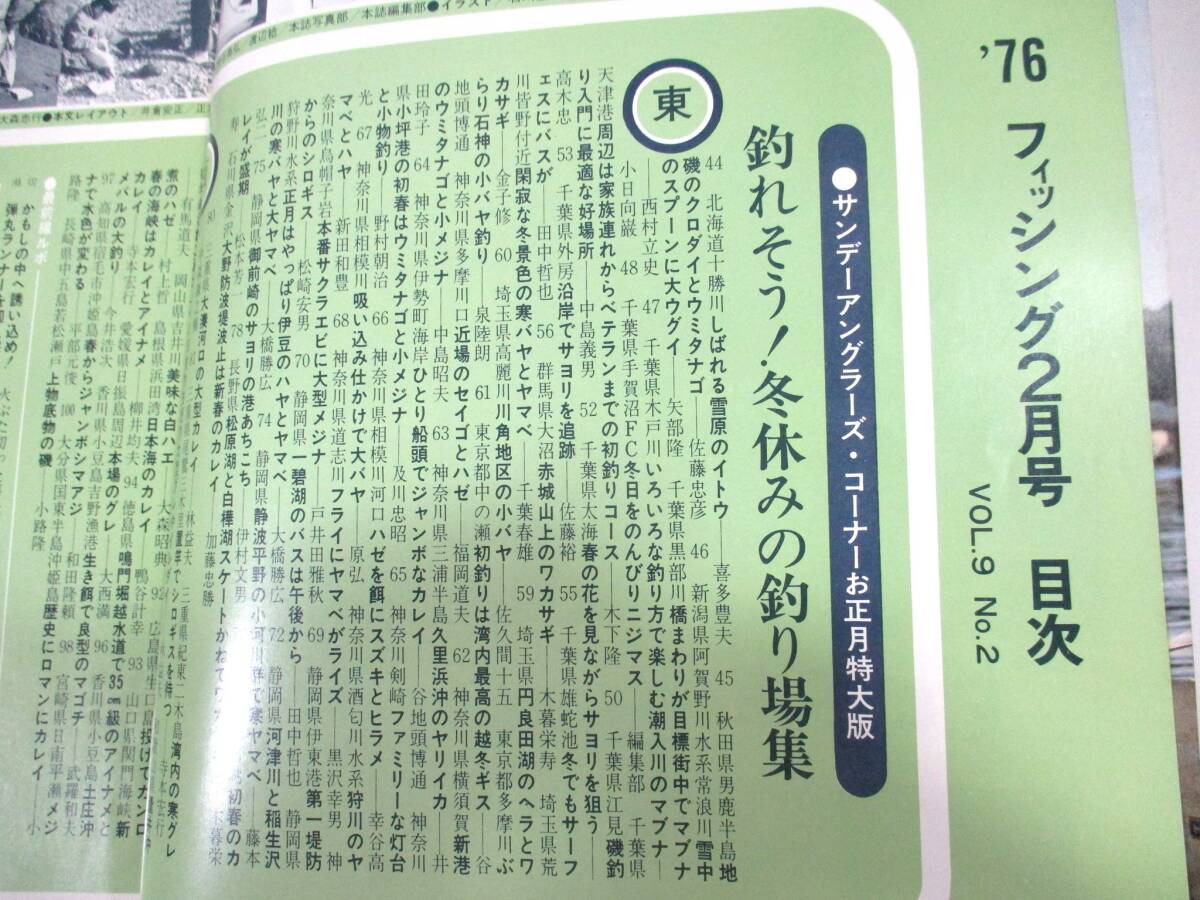 '76 フィッシング2月号 目次
VOL.9 No.2
●サンデーアングラーズ・コーナーお正月特大版
釣れそう！冬休みの釣り場集
東
44 北海道十勝川しばれる雪原のイトウ──喜多豊夫 45 秋田県男鹿半島地
磯のクロダイとウミタナゴ──佐藤忠彦 46 新潟県阿賀野川水系常浪川雪中
のスプーンに大ウグイ──矢部隆 千葉県黒部川橋まわりが目標街中でマブナ
──西村立史 47 千葉県木戸川いろいろな釣り方で楽しむ潮入川のマブナ──
小日向巌 48 千葉県手賀沼FC冬日をのんびりニジマス──編集部 千葉県
天津港周辺は家族連れからベテランまでの初釣りコース──木下隆 50 千葉県江見磯釣
り入門に最適な好場所──中島義男 52 千葉県太海春の花を見ながらサヨリを狙う──
高木忠 53 千葉県外房沿岸でサヨリを追跡──佐藤裕 55 千葉県雄蛇池冬でもサーフ
ェスにバスが──田中哲也 56 群馬県大沼赤城山上のワカサギ──木暮栄寿 埼玉県荒
川皆野付近閑寂な冬景色の寒バヤとヤマベ──千葉春雄 59 埼玉県円良田湖のヘラとワ
カサギ──金子修 60 埼玉県高麗川川角地区の小バヤ──佐久間十五 東京都多摩川ぶ
らり石神の小バヤ釣り──泉陸朗 61 東京都中の瀬初釣りは湾内最高の越冬ギス──谷
地頭博通 神奈川県多摩川口近場のセイゴとハゼ──福岡道夫 62 神奈川県横須賀新港
のウミタナゴと小メジナ──中島昭夫 63 神奈川県三浦半島久里浜沖のヤリイカ──井
田玲子 64 神奈川県伊勢町海岸ひとり船頭でジャンボなカレイ──谷地頭博通 神奈川
県小坪港の初春はウミタナゴと小メジナ──及川忠昭 65 神奈川剣崎ファミリーな灯台
と小物釣り──野村朝治 66 神奈川県相模川河口ハゼを餌にスズキとヒラメ──幸谷高
光 67 神奈川県相模川吸い込み仕かけで大バヤ──原弘 神奈川県酒匂川水系狩川のヤ
マベとハヤ──新田和豊 68 神奈川県道志川フライにヤマベがライズ──黒沢幸男 神
奈川県烏帽子岩本番サクラエビに大型メジナ──戸井田雅秋 69 静岡県伊東港第一堤防
からのシロギス──松崎安男 70 静岡県一碧湖のバスは午後から──田中哲也 静岡県
狩野川水系正月はやっぱり伊豆のハヤとヤマベ──大橋勝広 72 静岡県河津川と稲生沢
川の寒バヤと大ヤマベ──大橋勝広 74 静岡県静波平野の小河川群で寒ヤマベ──藤本
弘二 75 静岡県御前崎のサヨリの港あちこち──伊村文男
寿 石川県金沢大野防波堤波止は新春のカレイ
レイが盛期──松本芳一 78 長野県松原湖と白樺湖スケートかねてワカ
加藤忠勝
煮のハゼ──村上哲
春の海峡はカレイとアイナメ──柳井均夫 94 徳島県鳴門堀越水道で35cm級のアイナメと
97 高知県宿毛市沖姫島春からジャンボシマアジ──和田隆頼 98 宮崎県日南平瀬メジ
ナで水色が変わる──平部元俊 100 大分県国東半島沖姫島歴史にロマンにカレイ──小
●最前線ルポ
かもしの中へ誘い込め！